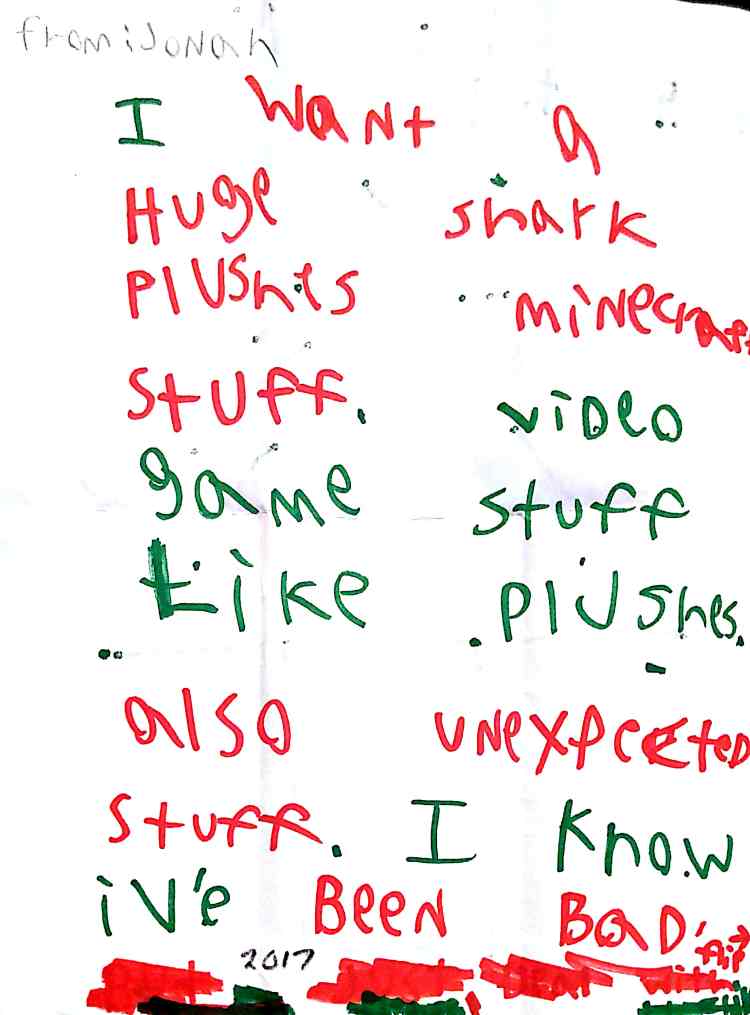 from: Jonah
I want a
Huge shark
plushes minecraft
stuff. video
game stuff
Like plushes.
also unexpected
stuff. I know
iv'e BEEN BaD,
flip →
2017
with